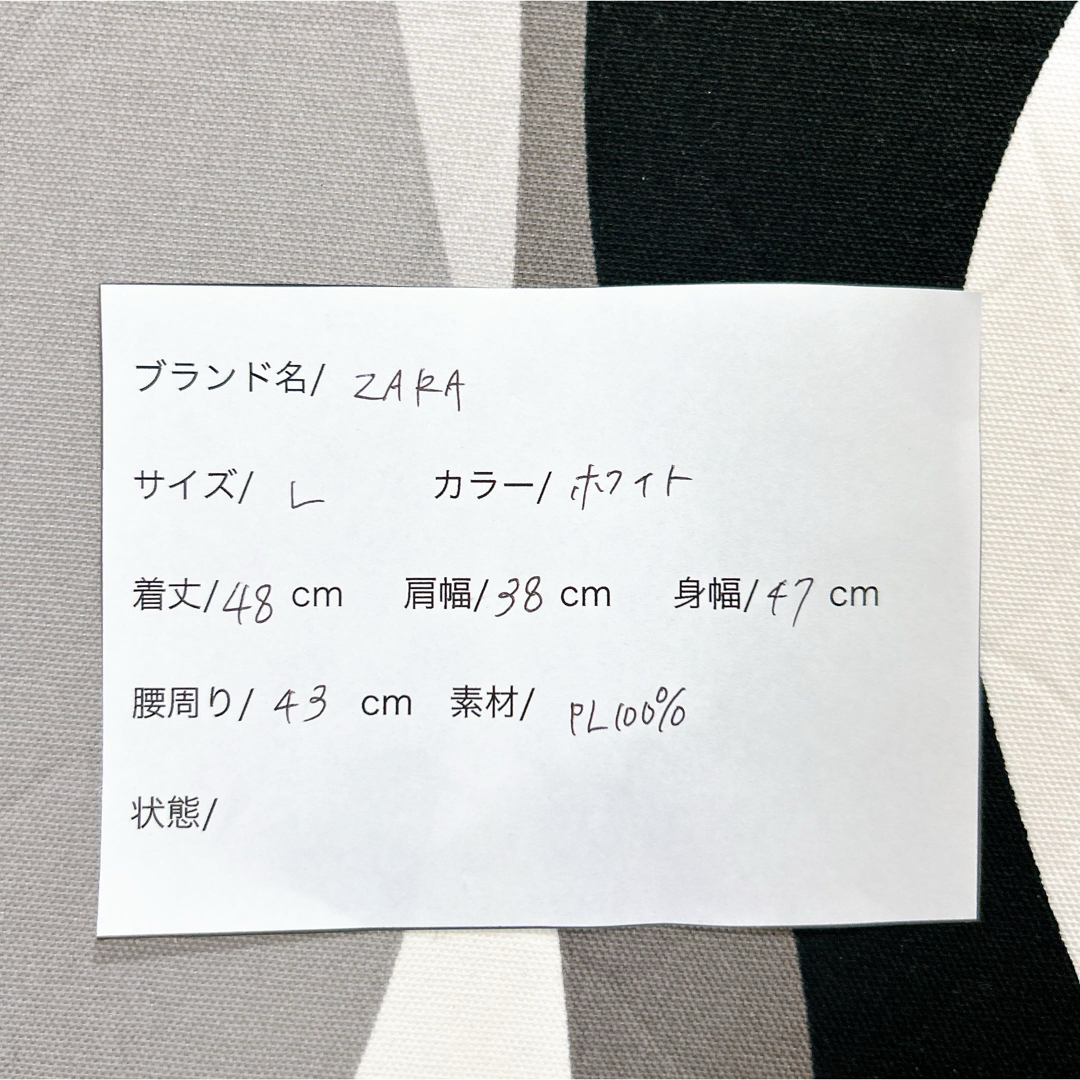 ブランド名/ ZARA
サイズ/ L カラー/ ホワイト
着丈/48 cm 肩幅/38 cm 身幅/47 cm
腰周り/ 43 cm 素材/ PL100%
状態/